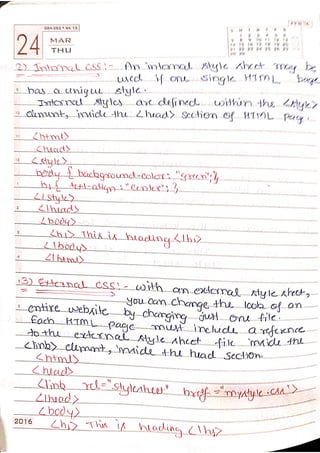 24 MAR
THU
2) Internal CSS:- An internal style sheet may be
used if one single HTML page
has a unique style.
Internal styles are defined within the <style>
element, inside the <head> section of HTML page.
<html>
<head>
<style>
body { background-color: "green";}
h1 { text-align: "center"; }
</style>
</head>
<body>
<h1> This is heading </h1>
</body>
</html>
3) External CSS:- with an external style sheet,
you can change the look of an
entire website by changing just one file.
Each HTML page must include a reference
to the external style sheet file inside the
<link> element, inside the head section.
<html>
<head>
<link rel="stylesheet" href="mystyle.css">
</head>
<body>
2016 <h1> This is heading </h1>